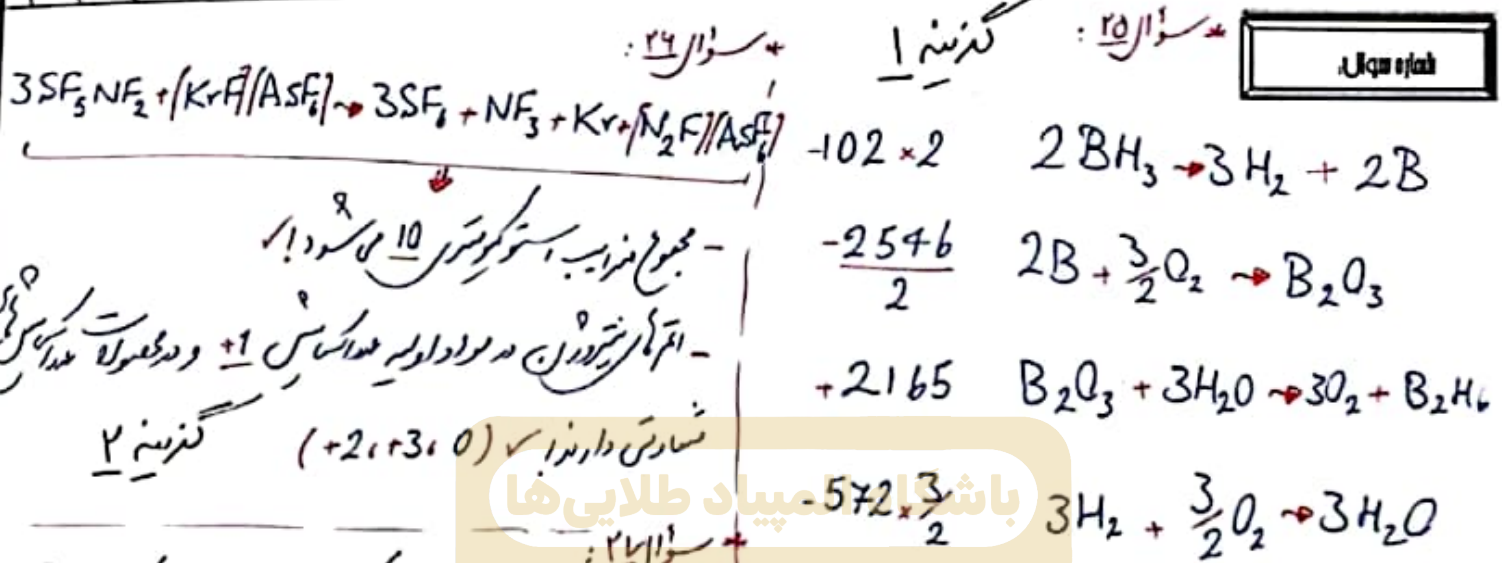 شماره سوال:
* سؤال ۲۵: گزینه ۱
-102 × 2    2BH₃ → 3H₂ + 2B
-2546/2    2B + 3/2 O₂ → B₂O₃
+2165    B₂O₃ + 3H₂O → 3O₂ + B₂H₆
-572 × 3/2    3H₂ + 3/2 O₂ → 3H₂O
* سؤال ۲۶:
3SF₅NF₂ + [KrF][AsF₆] → 3SF₆ + NF₃ + Kr + [N₂F][AsF₆]
- مجموع ضرایب استوکیومتری 10 می‌شود! ✓
- اتم‌های نیتروژن در مواد اولیه عدد اکسایش +1 و در محصولات عدد اکسایش‌های
متفاوتی دارند! ✓ (+2، +3، 0) گزینه ۲
* سؤال ۲۷:
باشگاه المپیاد طلایی‌ها